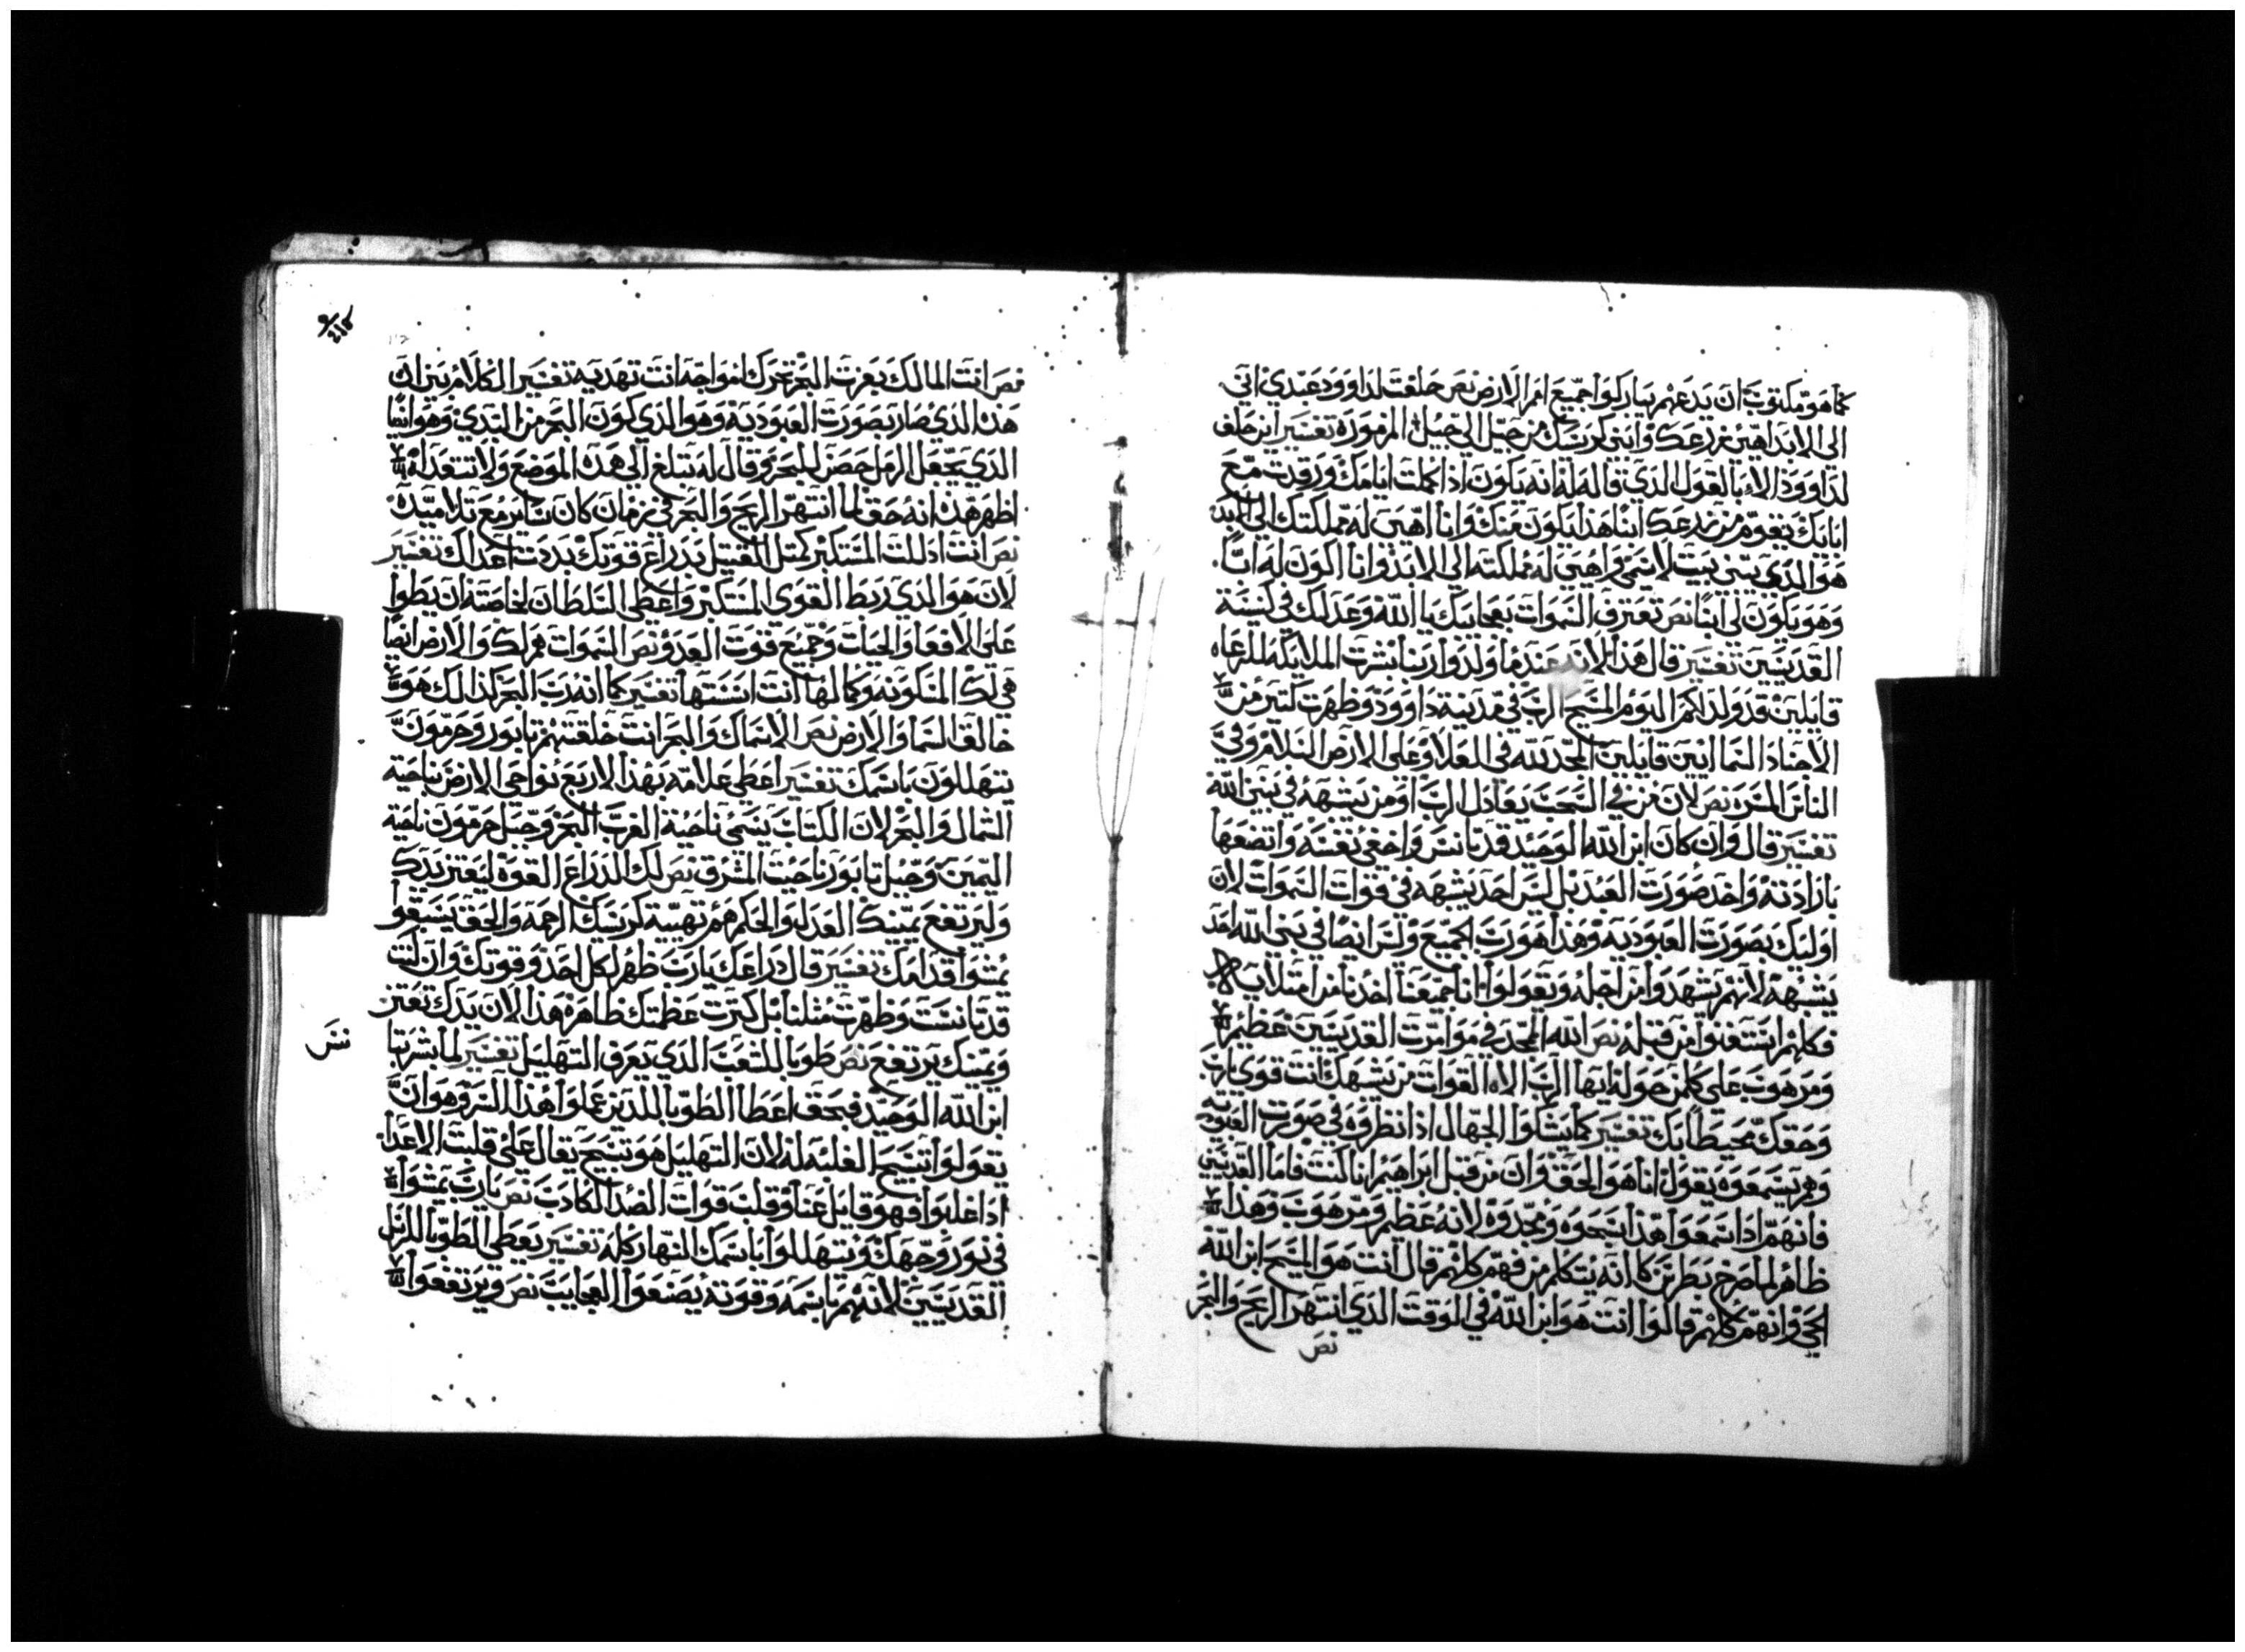 كما هو مكتوب ان بذرعهم يتباركوا جميع امم الارض نص حلفت لداوود عبدي اني
الى الابد اهيئ زرعك وابني كرسيك من جيل الي جيل المزمور تفسير اين حلف
لداوود الا بالقول الذي قاله له انه يكون اذا كملت ايامك ورقدت مع
ابايك يقوم من زرعك ابنا هذا يكون منك وانا اهيئ له مملكتك الى الابد
هو الذي يبني بيت لاسمي واهيئ له مملكته الى الابد وانا اكون له ابا.
وهو يكون لي ابنا نص تعترف السموات بعجايبك يا الله وعدلك في كنيسة
القديسين تفسير قال هذا لانه عندما ولدوا ربنا بشرت الملايكه للرعاه
قايلين قد ولد لكم اليوم المسيح الرب في مدينة داوود وظهرت كتير من
الاجناد السماايين قايلين المجد لله في العلا وعلى الارض السلام وفي
الناس المسره نص لان من في السحب يعادل الرب او من يشبهه في بني الله
تفسير قال وان كان ابن الله الوحيد قد تانس واخفى نفسه واتضعها
بارادته واخد صورت العبد بل ليس احد يشبهه في قوات السموات لان
اوليك بصورت العبوديه وهذا هو رب الجميع وليس ايضا في بني الله احد
يشبهه لانهم يشهدوا من اجله ويقولوا انا جميعنا اخدنا من امتلايه
فكلهم استغنوا من قبله نص الله الممجد في موامرت القديسين عظيم
ومرهوب على كلمن حوله ايها الرب الاه القوات من يشبهك انت قوى يارب
وحقك محيطا بك تفسير كما يشكوا الجهال اذا نظروه في صورت العبوديه
وهم يسمعوه يقول انا هو الحق وان من قبل ابراهيم انا كنت فاما القديسين
فانهم اذا سمعوا هذا يسبحوه ويمجدوه لانه عظيم ومرهوب وهذا
ظاهر لما صرخ بطرس كانه يتكلم من فهم كلهم قال انت هو المسيح ابن الله
الحي وانهم كلهم قالوا انت هو ابن الله في الوقت الذي انتهر الريح والبحر
نص
نص انت المالك بعزت البحر تحرك امواجه انت تهديه تفسير الكلام بين ان
هذا الذي صار بصورت العبوديه وهو الذي كون البحر من البدي وهو ايضا
الذي جعل الرمل حصن للبحر وقال له تبلغ الي هذه الموضع ولا تتعداه
اظهر هذه انه حق لما انتهر الريح والبحر في زمان كان ساير مع تلاميده
نص انت ادللت المستكبر كمثل القتيل بدراع قوتك بددت اعداك تفسير
لان هو الذي ربط القوي المستكبر واعطى السلطان لخاصته ان يطوا
على الافعا والحيات وجميع قوت العدو نص السموات هم لك والارض ايضا
هي لك المسكونه وكمالها انت اسستها تفسير كما انه رب البحر كذالك هو
خالق السما والارض نص الاسماك والبحر انت خلقتهم تابور وحرمون
يتهللون باسمك تفسير اعطى علامه بهذا الاربع نواحي الارض بناحية
الشمال والبحر لان الكتاب يسمي ناحية الغرب البحر وجبل حرمون ناحية
اليمين وجبل تابور ناحيت المشرق نص لك الدراع القوة ليعتز يدك
وليرتفع يمينك العدل والحكم هم تهيية كرسيك الرحمه والحق يسبقوا
يمشوا قدامك تفسير قال دراعك يارب ظهر لكل احد وقوتك وان كنت
قد تانست وظهرت مثلنا بل كترت عظمتك ظاهرة هذا لان يدك تعتز
ويمينك يرتفع نص طوبا للشعب الذي يعرف التهليل تفسير لما بشرتنا
ابن الله الوحيد فبحق اعطا الطوبا للذين عملوا هذا السر وهو ان
يقولوا تسبيح الغلبه له لان التهليل هو تسبيح يقال على قلبت الاعدا
اذا غلبوا فهو قاتل عنا وقلب قوات الضد الكادب نص يارب يمشوا
في نور وجهك ويتهللوا باسمك النهار كله تفسير يعطى الطوبا للرسل
القديسين لانهم باسمه وقوته يصنعوا العجايب نص ويرتفعوا